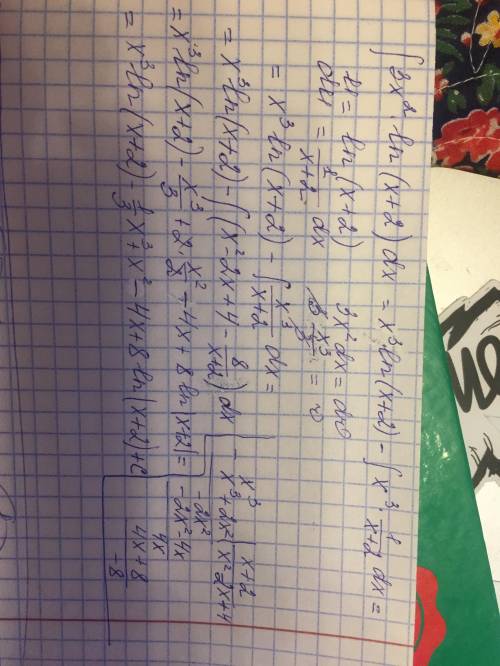 ∫3x²·ln(x+2)dx = x³ln(x+2) - ∫x³·1/(x+2) dx =
u = ln(x+2)   3x²dx = dv
du = 1/(x+2) dx   3 x³/3 = v
= x³ln(x+2) - ∫x³/(x+2) dx =
= x³ln(x+2) - ∫(x²-2x+4 - 8/(x+2))dx
= x³ln(x+2) - x³/3 + 2·x²/2 - 4x + 8ln|x+2| =
= x³ln(x+2) - 1/3x³ + x² - 4x + 8·ln|x+2| + C
- x³ | x+2
x³+2x² | x²-2x+4
-2x²
-2x²-4x
4x
4x+8
-8